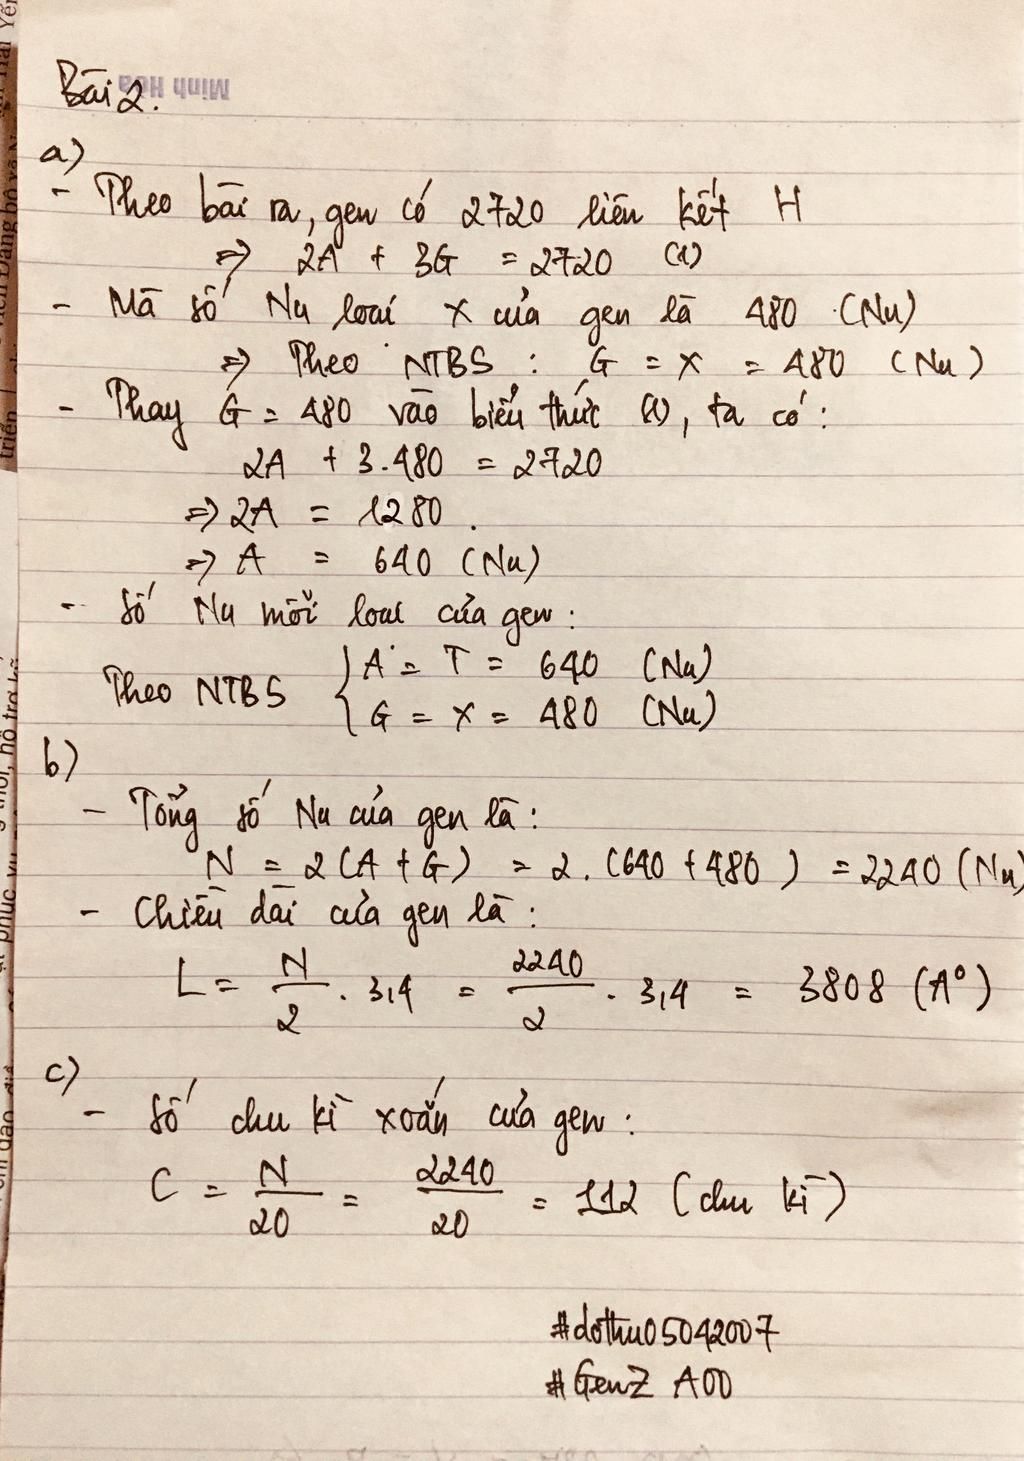 Bài 2.
Minh Hoa
a)
- Theo bài ra, gen có 2720 liên kết H
=> 2A + 3G = 2720 (1)
- Mà số Nu loại X của gen là 480 (Nu)
=> Theo NTBS : G = X = 480 (Nu)
- Thay G = 480 vào biểu thức (1), ta có:
2A + 3.480 = 2720
=> 2A = 1280.
=> A = 640 (Nu)
- Số Nu mỗi loại của gen:
Theo NTBS { A = T = 640 (Nu)
G = X = 480 (Nu)
b)
- Tổng số Nu của gen là:
N = 2(A + G) = 2.(640 + 480) = 2240 (Nu)
- Chiều dài của gen là:
L = N/2 . 3,4 = 2240/2 . 3,4 = 3808 (A°)
c)
- Số chu kì xoắn của gen:
C = N/20 = 2240/20 = 112 (chu kì)
#dothu05042007
#GenZ A00